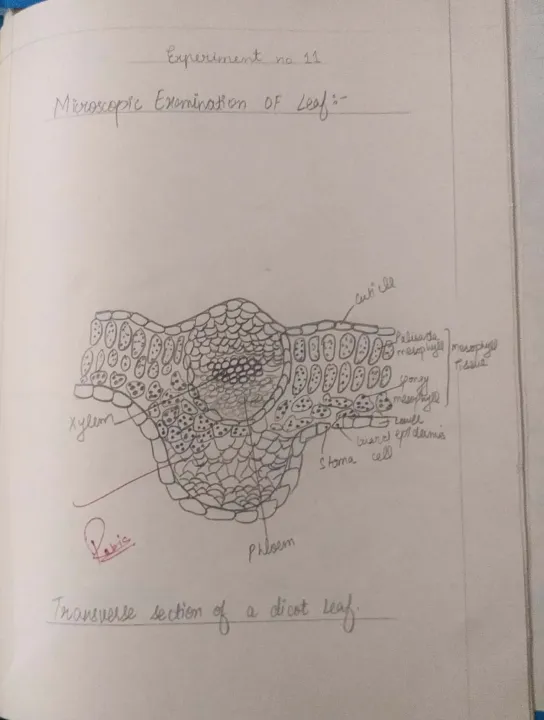 Experiment no 11
Microscopic Examination OF Leaf:-
cuticle
Palisade
mesophyll
mesophyll
tissue
spongy
mesophyll
Lower
epidermis
guard
cell
Stoma
Xylem
Phloem
Transverse section of a dicot leaf.